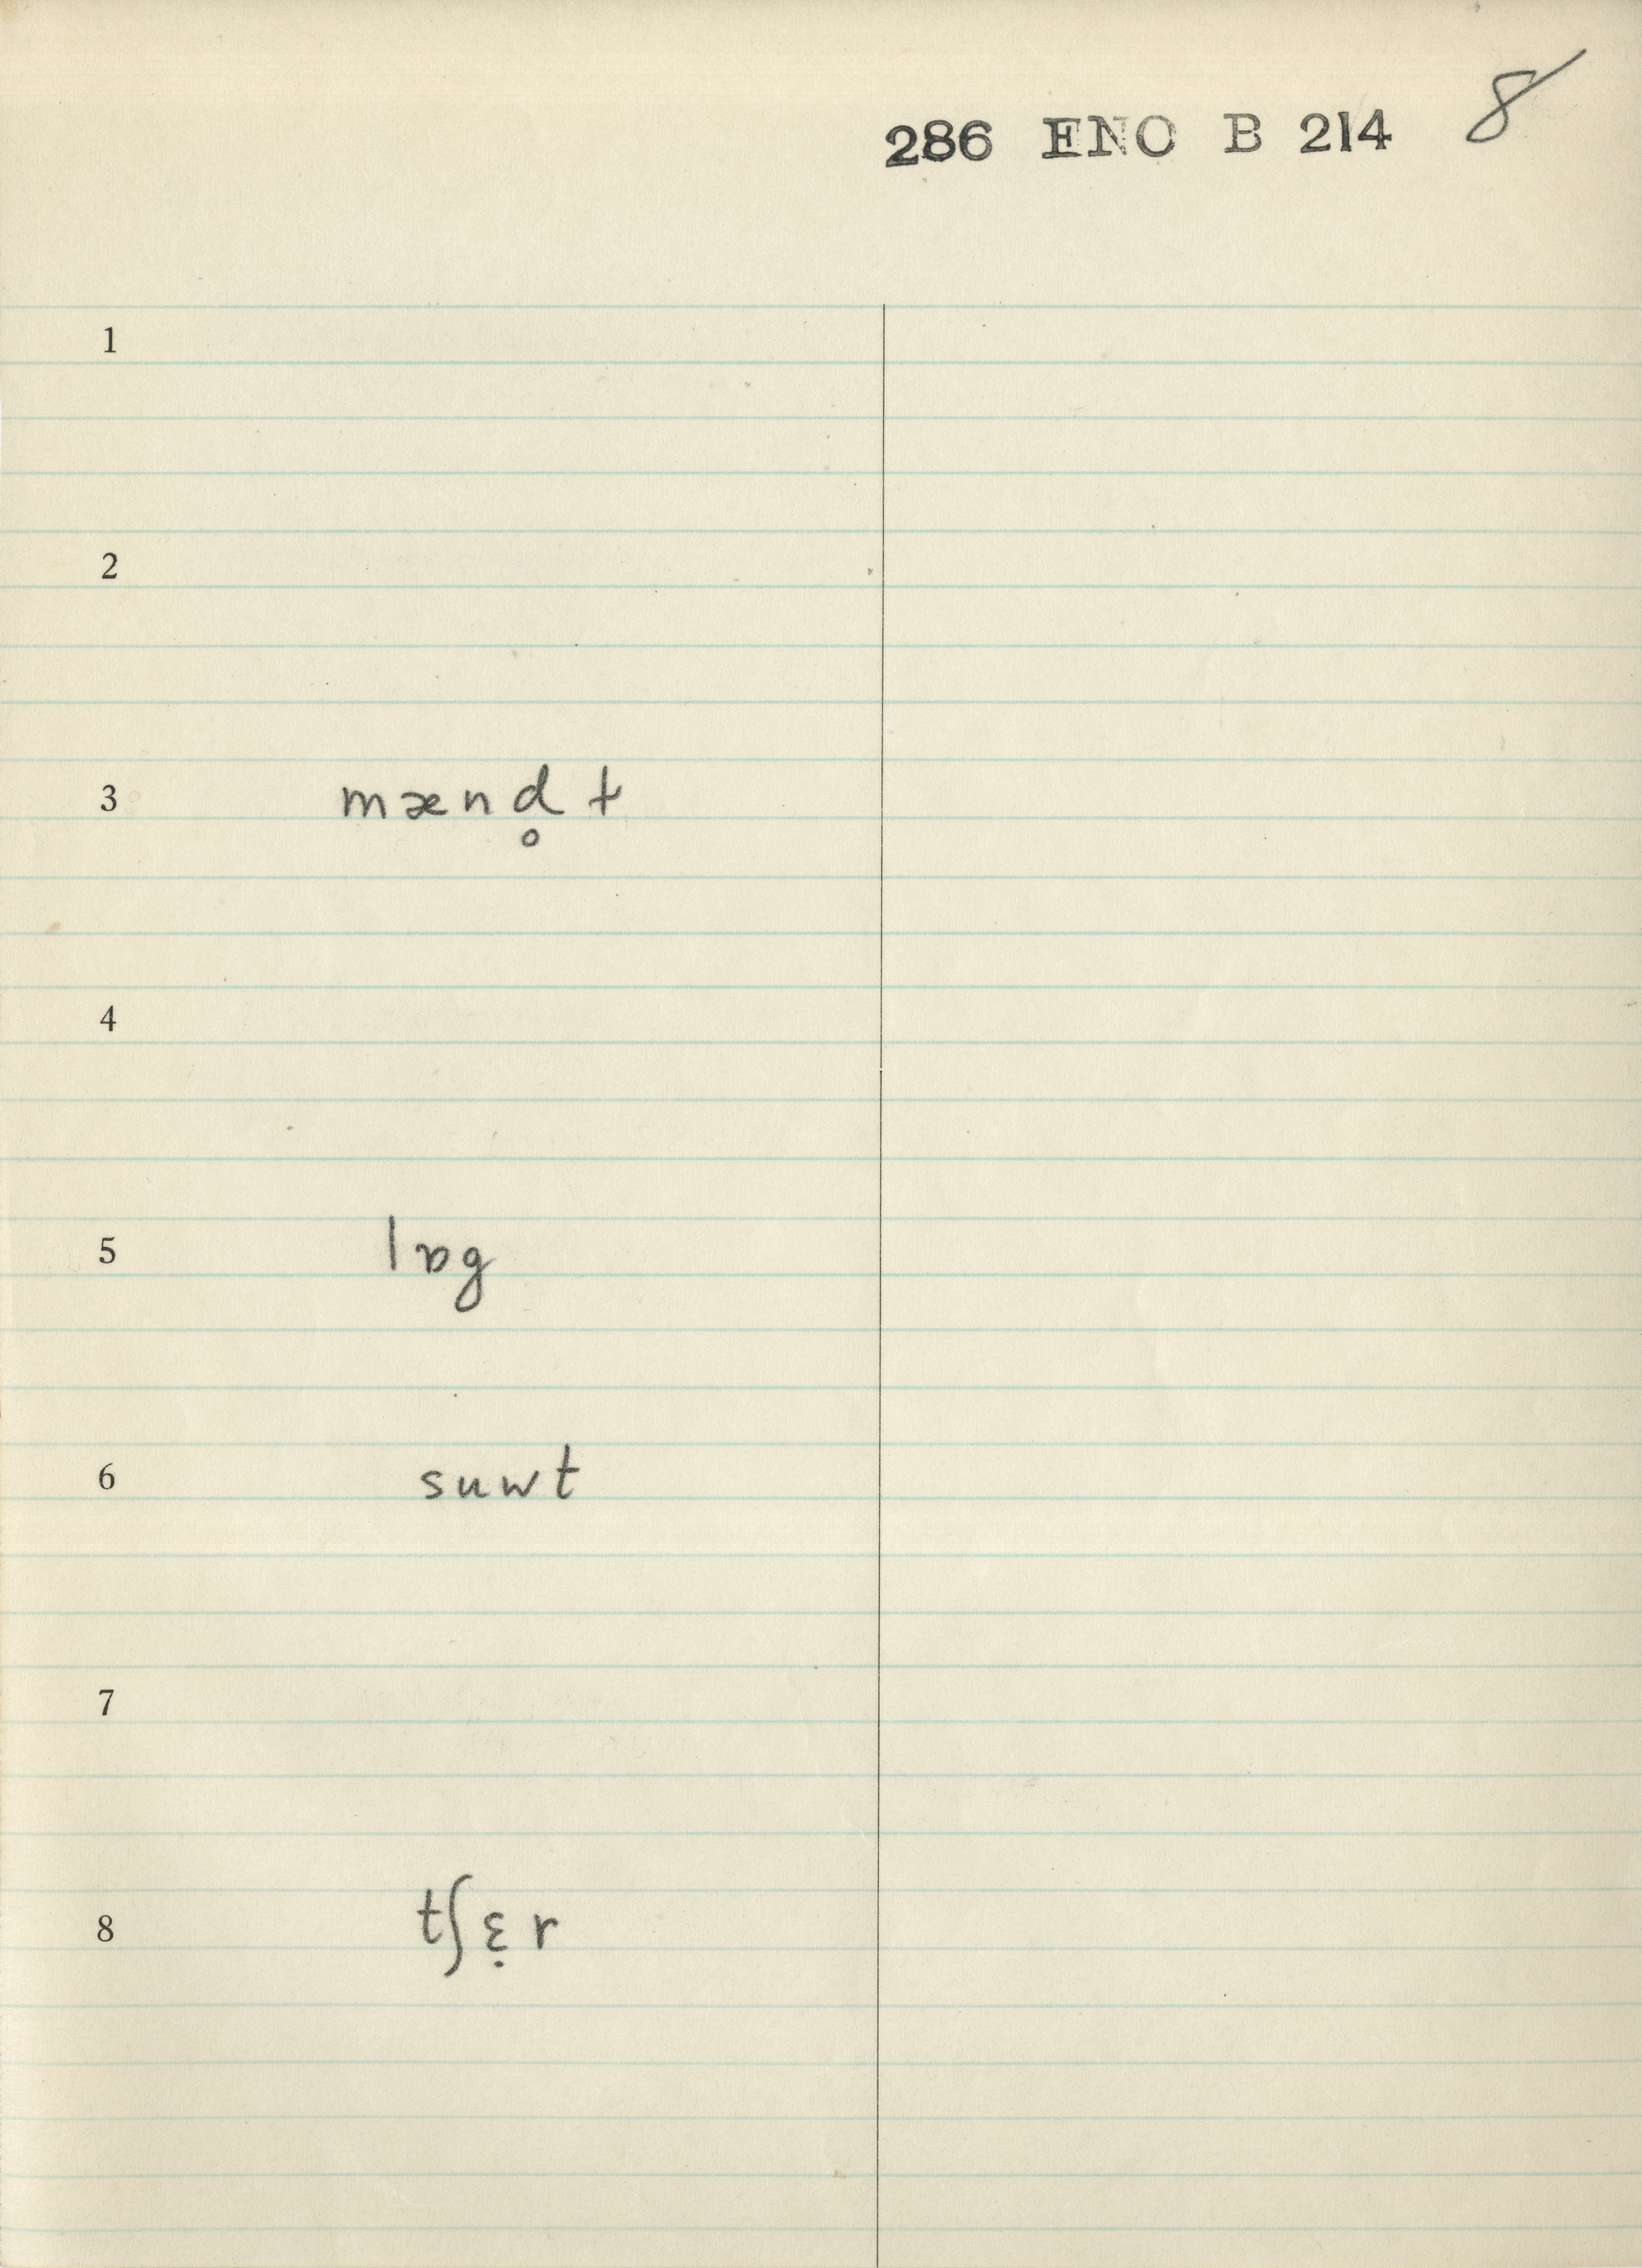 286 ENO B 214 8
1
2
3 mænd̥ ɫ
4
5 lɒg
6 suwt
7
8 tʃɛ̣r